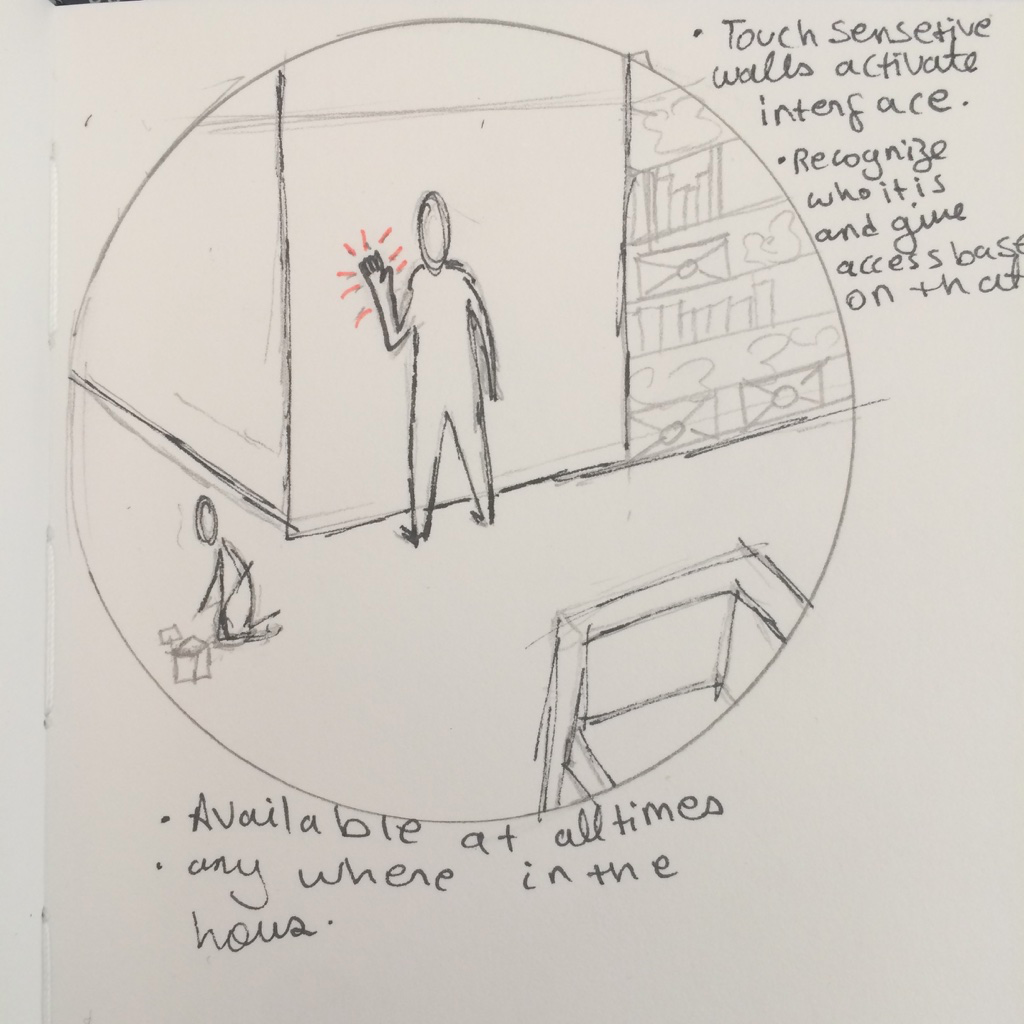 • Touch sensetive
walls activate
interface.
• Recognize
who it is
and give
access base
on that
• Available at all times
• any where in the
hous.